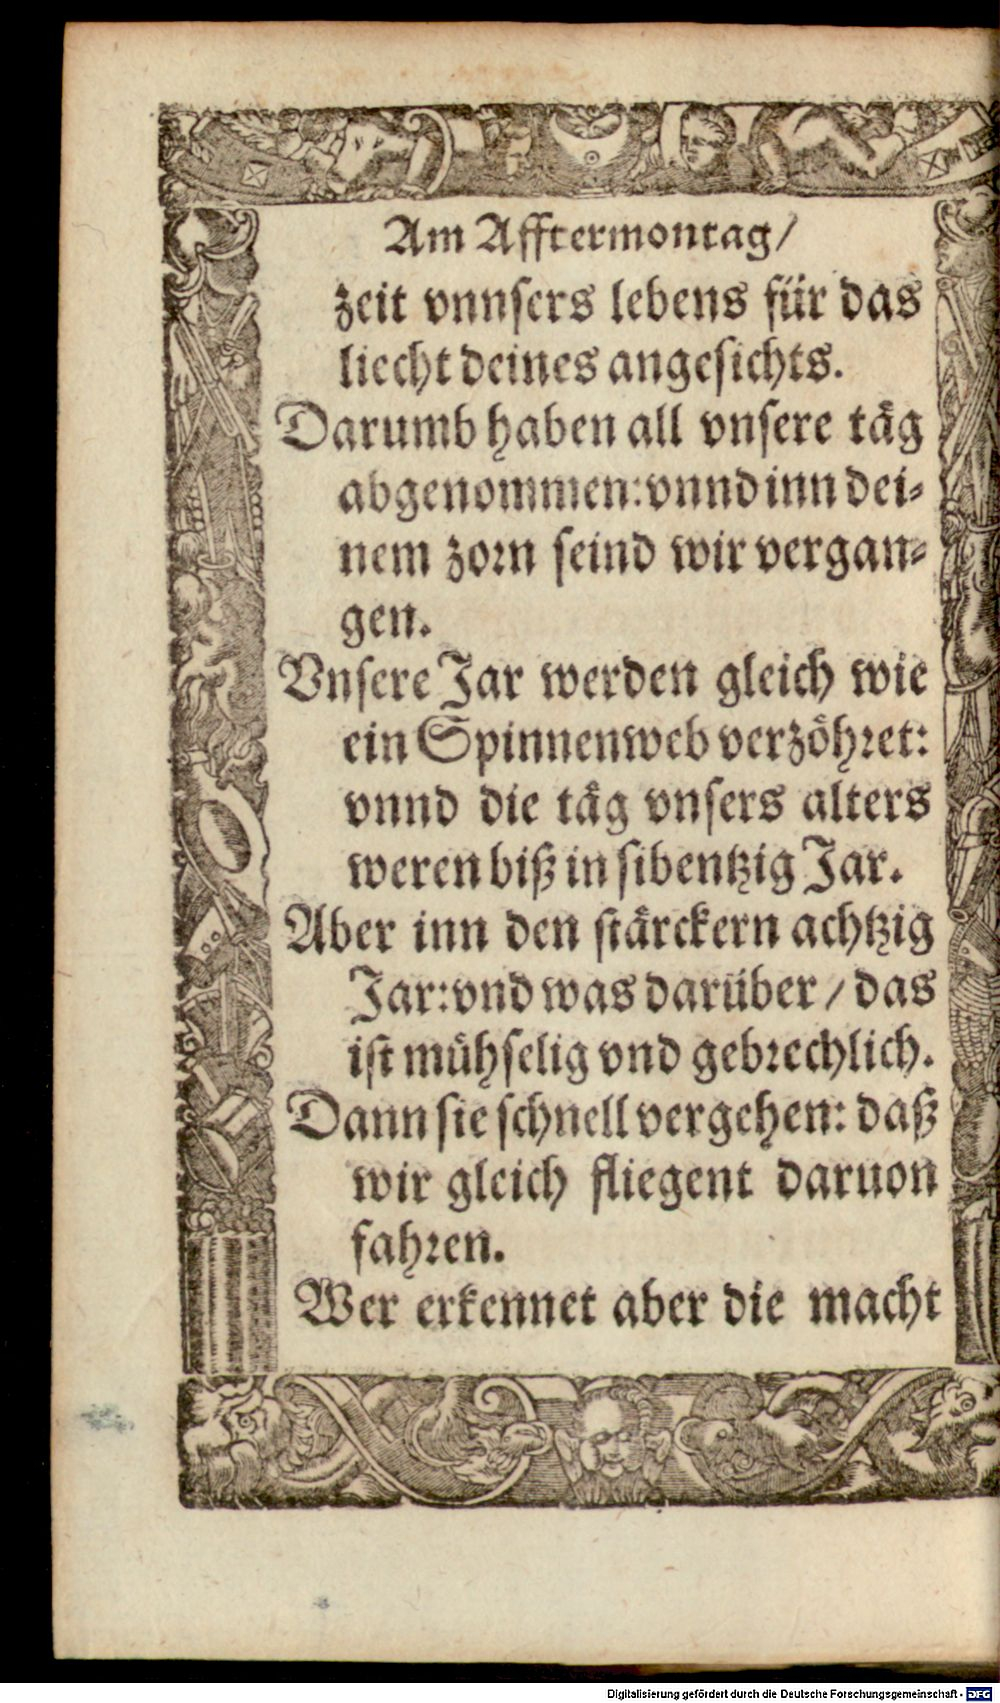 Am Afftermontag/
zeit vnnsers lebens für das
liecht deines angesichts.
Darumb haben all vnsere täg
abgenommen: vnnd inn dei-
nem zorn seind wir vergan-
gen.
Vnsere Jar werden gleich wie
ein Spinnenweb verzöhret:
vnnd die täg vnsers alters
weren biß in sibentzig Jar.
Aber inn den stärckern achtzig
Jar: vnd was darüber / das
ist mühselig vnd gebrechlich.
Dann sie schnell vergehen: daß
wir gleich fliegent daruon
fahren.
Wer erkennet aber die macht
Digitalisierung gefördert durch die Deutsche Forschungsgemeinschaft - DFG